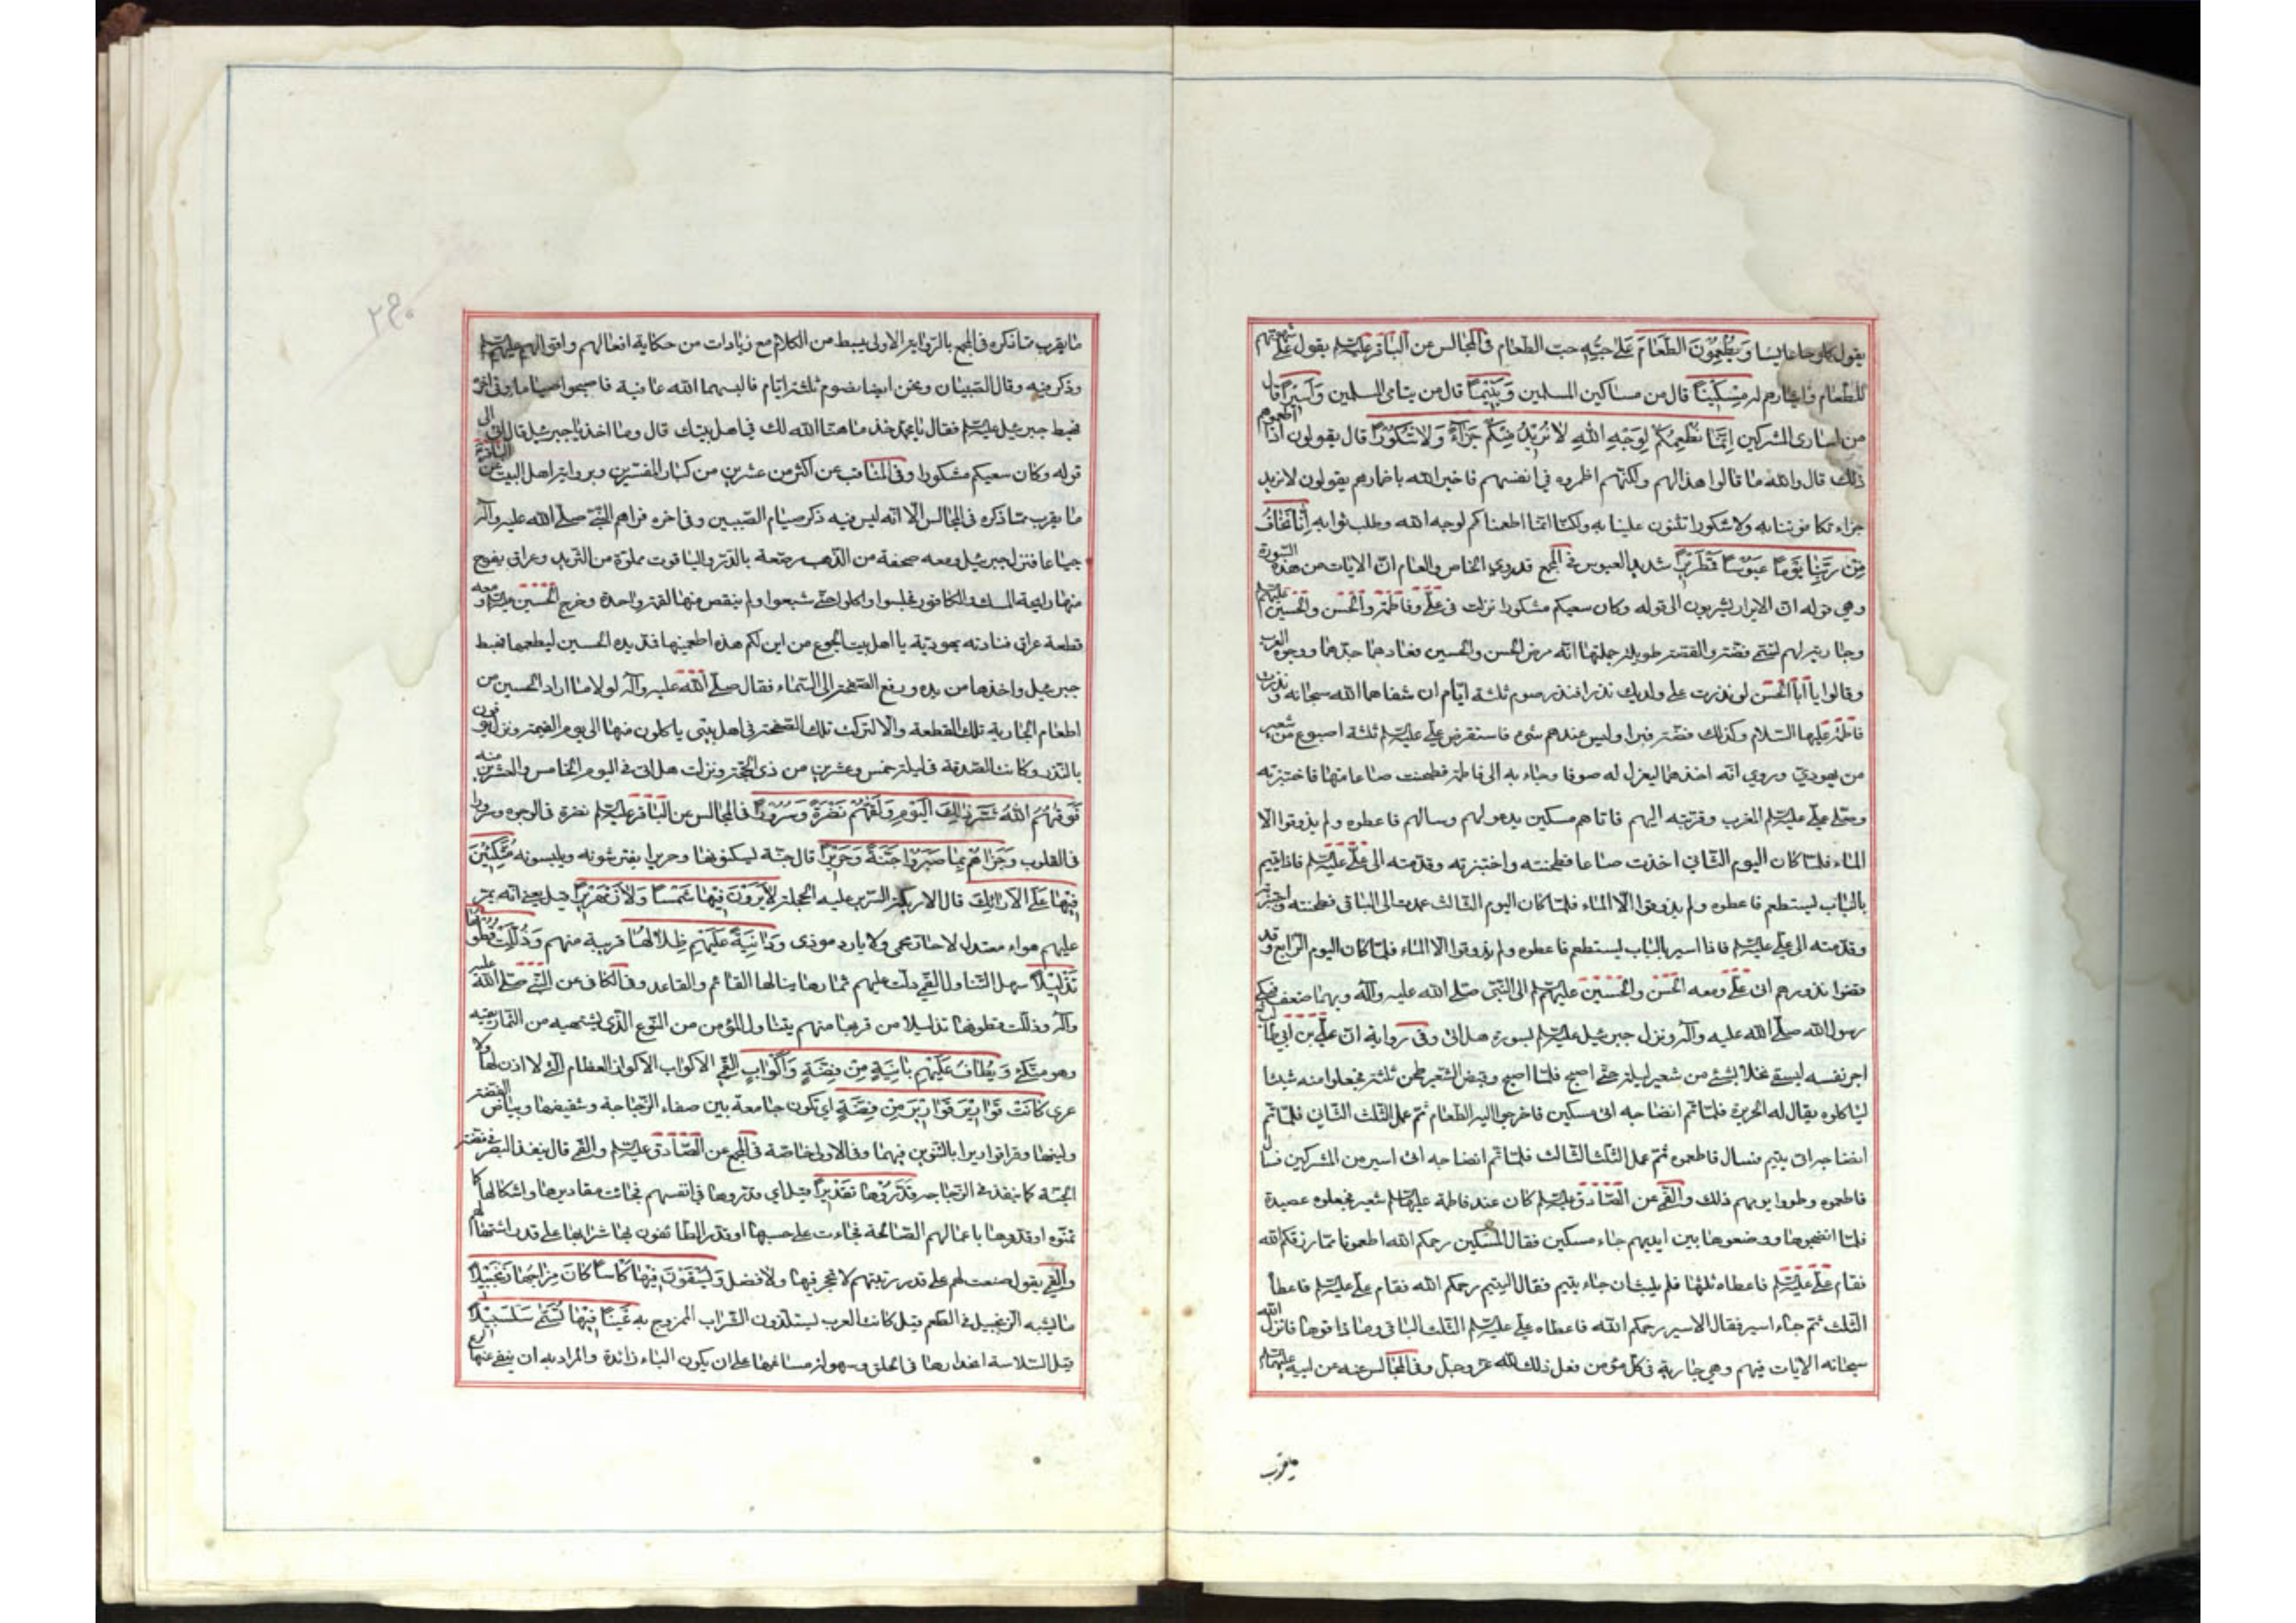 يقول كلوحا عابسا وَيُطْعِمُونَ الطَّعَامَ عَلىٰ حُبِّهِ حبّ الطعام في المجالس عن الباقر عليه السلم يقول على شهوتهم
للطعام وايثارهم له مِسْكِيْناً قال من مساكين المسلمين وَيَتِيْماً قال من يتامى المسلمين وَاَسِيْراً قال
من اسارى المشركين اِنَّمَا نُطْعِمُكُمْ لِوَجْهِ اللهِ لاٰ نُرِيْدُ مِنْكُمْ جَزَاۤءً وَلاٰ شُكُوْراً قال يقولون اذا اطعموهم
ذلك قال والله ما قالوا هذا لهم ولكنّهم اضمروه في انفسهم فاخبر الله باضمارهم يقولون لا نريد
جزاء تكافوننا به ولا شكورا تثنون علينا به ولكنّا انّما اطعمناكم لوجه الله وطلب ثوابه اِنّٰا نَخَافُ
مِنْ رَبِّنٰا يَوْماً عَبُوْساً قَمْطَرِيْراً شديد العبوس في المجمع قد روي الخاص والعام انّ الايات من هذه السورة
وهي قوله انّ الابرار يشربون الى قوله وكان سعيكم مشكورا نزلت في علي وفاطمة والحسن والحسين عليهم السلم
وجارية لهم تسمّى فضّة والقصّة طويلة جملتها انّه مرض الحسن والحسين فعادهما جدّهما ووجوه العرب
وقالوا يا ابا الحسن لو نذرت على ولديك نذرا فنذر صوم ثلثة ايّام ان شفاهما الله سبحانه ونذرت
فاطمة عليها السلام وكذلك فضّة فبرءا وليس عندهم شيء فاستقرض علي عليه السلم ثلثة اصوع من شعير
من يهوديّ وروي انّه اخذها ليغزل له صوفا وجاء به الى فاطمة فطحنت صاعا منها فاختبزته
وصلّى علي عليه السلم المغرب وقرّبته اليهم فاتاهم مسكين يدعو لهم وسالهم فاعطوه ولم يذوقوا الّا
الماء فلمّا كان اليوم الثاني اخذت صاعا فطحنته واختبزته وقدّمته الى علي عليه السلم فاذا يتيم
بالباب يستطعم فاعطوه ولم يذوقوا الّا الماء فلمّا كان اليوم الثالث عمدت الى الباقي فطحنته واختبزته
وقدّمته الى علي عليه السلم فاذا اسير بالباب يستطعم فاعطوه ولم يذوقوا الا الماء فلمّا كان اليوم الرابع وقد
قضوا نذورهم اتى علي ومعه الحسن والحسين عليهم السلم الى النبي صلّى الله عليه وآله وبهما ضعف فبكى
رسول الله صلّى الله عليه وآله ونزل جبرئيل عليه السلم بسورة هل اتى وفي رواية انّ علي بن ابي طالب
اجر نفسه ليسقي نخلا بشئ من شعير ليلة حتّى اصبح فلمّا اصبح وقبض الشعير طحن ثلثه فجعلوا منه شيئا
لياكلوه يقال له الحريرة فلمّا تمّ انضاجه اتى مسكين فاخرجوا اليه الطعام ثمّ عمل الثلث الثاني فلمّا تمّ
انضاجه اتى يتيم فسال فاطعموه ثمّ عمل الثلث الثالث فلمّا تمّ انضاجه اتى اسير من المشركين فسال
فاطعموه وطووا يومهم ذلك والقمي عن الصادق عليه السلم كان عند فاطمة عليها السلم شعير فجعلوه عصيدة
فلمّا انضجوها ووضعوها بين ايديهم جاء مسكين فقال المسكين رحمكم الله اطعمونا ممّا رزقكم الله
فقام علي عليه السلم فاعطاه ثلثها فلم يلبث ان جاء يتيم فقال اليتيم رحمكم الله فقام علي عليه السلم فاعطاه
الثلث ثمّ جاء اسير فقال الاسير رحمكم الله فاعطاه علي عليه السلم الثلث الباقي وما ذاقوها فانزل الله
سبحانه الايات فيهم وهي جارية في كلّ مؤمن فعل ذلك لله عزّ وجلّ وفي المجالس عنه عن ابيه عليهما السلم
ما يقرب
ما يقرب ممّا ذكره في المجمع بالرواية الاولى ببسط من الكلام مع زيادات من حكاية افعالهم واقوالهم عليهم السلم
وذكر فيه وقال الصبيان ونحن ايضا نصوم ثلثة ايّام فالبسهما الله عافية فاصبحوا صياما وفي اخره
فهبط جبرئيل عليه السلم فقال يا محمد خذ ما هنّا الله لك في اهل بيتك قال وما اخذ يا جبرئيل قال هل اتى الى
قوله وكان سعيكم مشكورا وفي المناقب عن اكثر من عشرين من كبار المفسّرين وبرواية اهل البيت عن الباقر
ما يقرب ممّا ذكره في المجالس الّا انّه ليس فيه ذكر صيام الصبيين وفي اخره فراهم النبي صلّى الله عليه وآله
جياعا فنزل جبرئيل ومعه صحفة من الذهب مرصّعة بالدّر والياقوت مملوّة من الثريد وعراق يفوح
منها رايحة المسك والكافور فجلسوا واكلوا حتّى شبعوا ولم ينقص منها لقمة واحدة وخرج الحسين عليه السلم ومعه
قطعة عراق فنادته يهوديّة يا اهل بيت الجوع من اين لكم هذه اطعمنيها فمدّ يده الحسين ليطعمها فهبط
جبرئيل واخذها من يده ورفع الصحفة الى السّماء فقال صلّى الله عليه وآله لولا ما اراد الحسين من
اطعام الجارية تلك القطعة والا لتركت تلك الصحفة في اهل بيتي ياكلون منها الى يوم القيمة ونزل يوفون
بالنّذر وكانت الصدقة في ليلة خمس وعشرين من ذي الحجّة ونزلت هل اتى في اليوم الخامس والعشرين منه
فَوَقٰيهُمُ اللهُ شَرَّ ذٰلِكَ الْيَوْمِ وَلَقّٰيهُمْ نَضْرَةً وَسُرُوْراً في المجالس عن الباقر عليه السلم نضرة في الوجوه وسرورا
في القلوب وَجَزٰاهُمْ بِمٰا صَبَرُوا جَنَّةً وَحَرِيْراً قال جنّة يسكنونها وحريرا يفترشونه ويلبسونه مُتَّكِئِيْنَ
فِيْهٰا عَلَى الْاَرٰائِكِ قال الاريكة السّرير عليه الحجلة لاٰ يَرَوْنَ فِيْهٰا شَمْساً وَلاٰ زَمْهَرِيْراً قيل يعني انّه يمرّ
عليهم هواء معتدل لا حارّ محمي ولا بارد موذي وَدٰانِيَةً عَلَيْهِمْ ظِلاٰلُهٰا قريبة منهم وَذُلِّلَتْ قُطُوْفُهٰا
تَذْلِيْلاً سهل التناول القمي دلّت عليهم ثمارها ينالها القائم والقاعد وفي الكافي عن النبي صلّى الله عليه
وآله وذللّت قطوفها تذليلا من قربها منهم يتناول المؤمن من النّوع الذي يشتهيه من الثمار بفيه
وهو متّكئ وَيُطٰافُ عَلَيْهِمْ بِاٰنِيَةٍ مِنْ فِضَّةٍ وَاَكْوٰابٍ القمي الاكواب الاكواز العظام التي لا اذن لها ولا
عرى كٰانَتْ قَوٰارِيْرَ قَوٰارِيْرَ مِنْ فِضَّةٍ اي تكون جامعة بين صفاء الزجاجة وشفيفها وبياض الفضّة
ولينها وقرء قواريرا بالتنوين فيهما وفي الاولى خاصّة في المجمع عن الصادق عليه السلم والقمي قال ينفذ البصر في فضّة
الجنّة كما ينفذ في الزجاجة قَدَّرُوْهٰا تَقْدِيْراً قيل اي قدّروها في انفسهم فجائت مقاديرها واشكالها كما
تمنّوه او قدّروها باعمالهم الصّالحة فجاءت على حسبها او قدّر الطائفون بها شرابها على قدر اشتهائهم
والقمي يقول صنعت لهم على قدر رتبتهم لا عجز فيها ولا فضل وَيُسْقَوْنَ فِيْهٰا كَأْساً كٰانَ مِزٰاجُهٰا زَنْجَبِيْلاً
ما يشبه الزنجبيل في الطعم قيل كانت العرب يستلذّون الشّراب الممزوج به عَيْناً فِيْهٰا تُسَمّٰى سَلْسَبِيْلاً
قيل لسلاسة انحدارها في الحلق وسهولة مساغها على ان يكون الباء زائدة والمراد به ان ينفي عنها